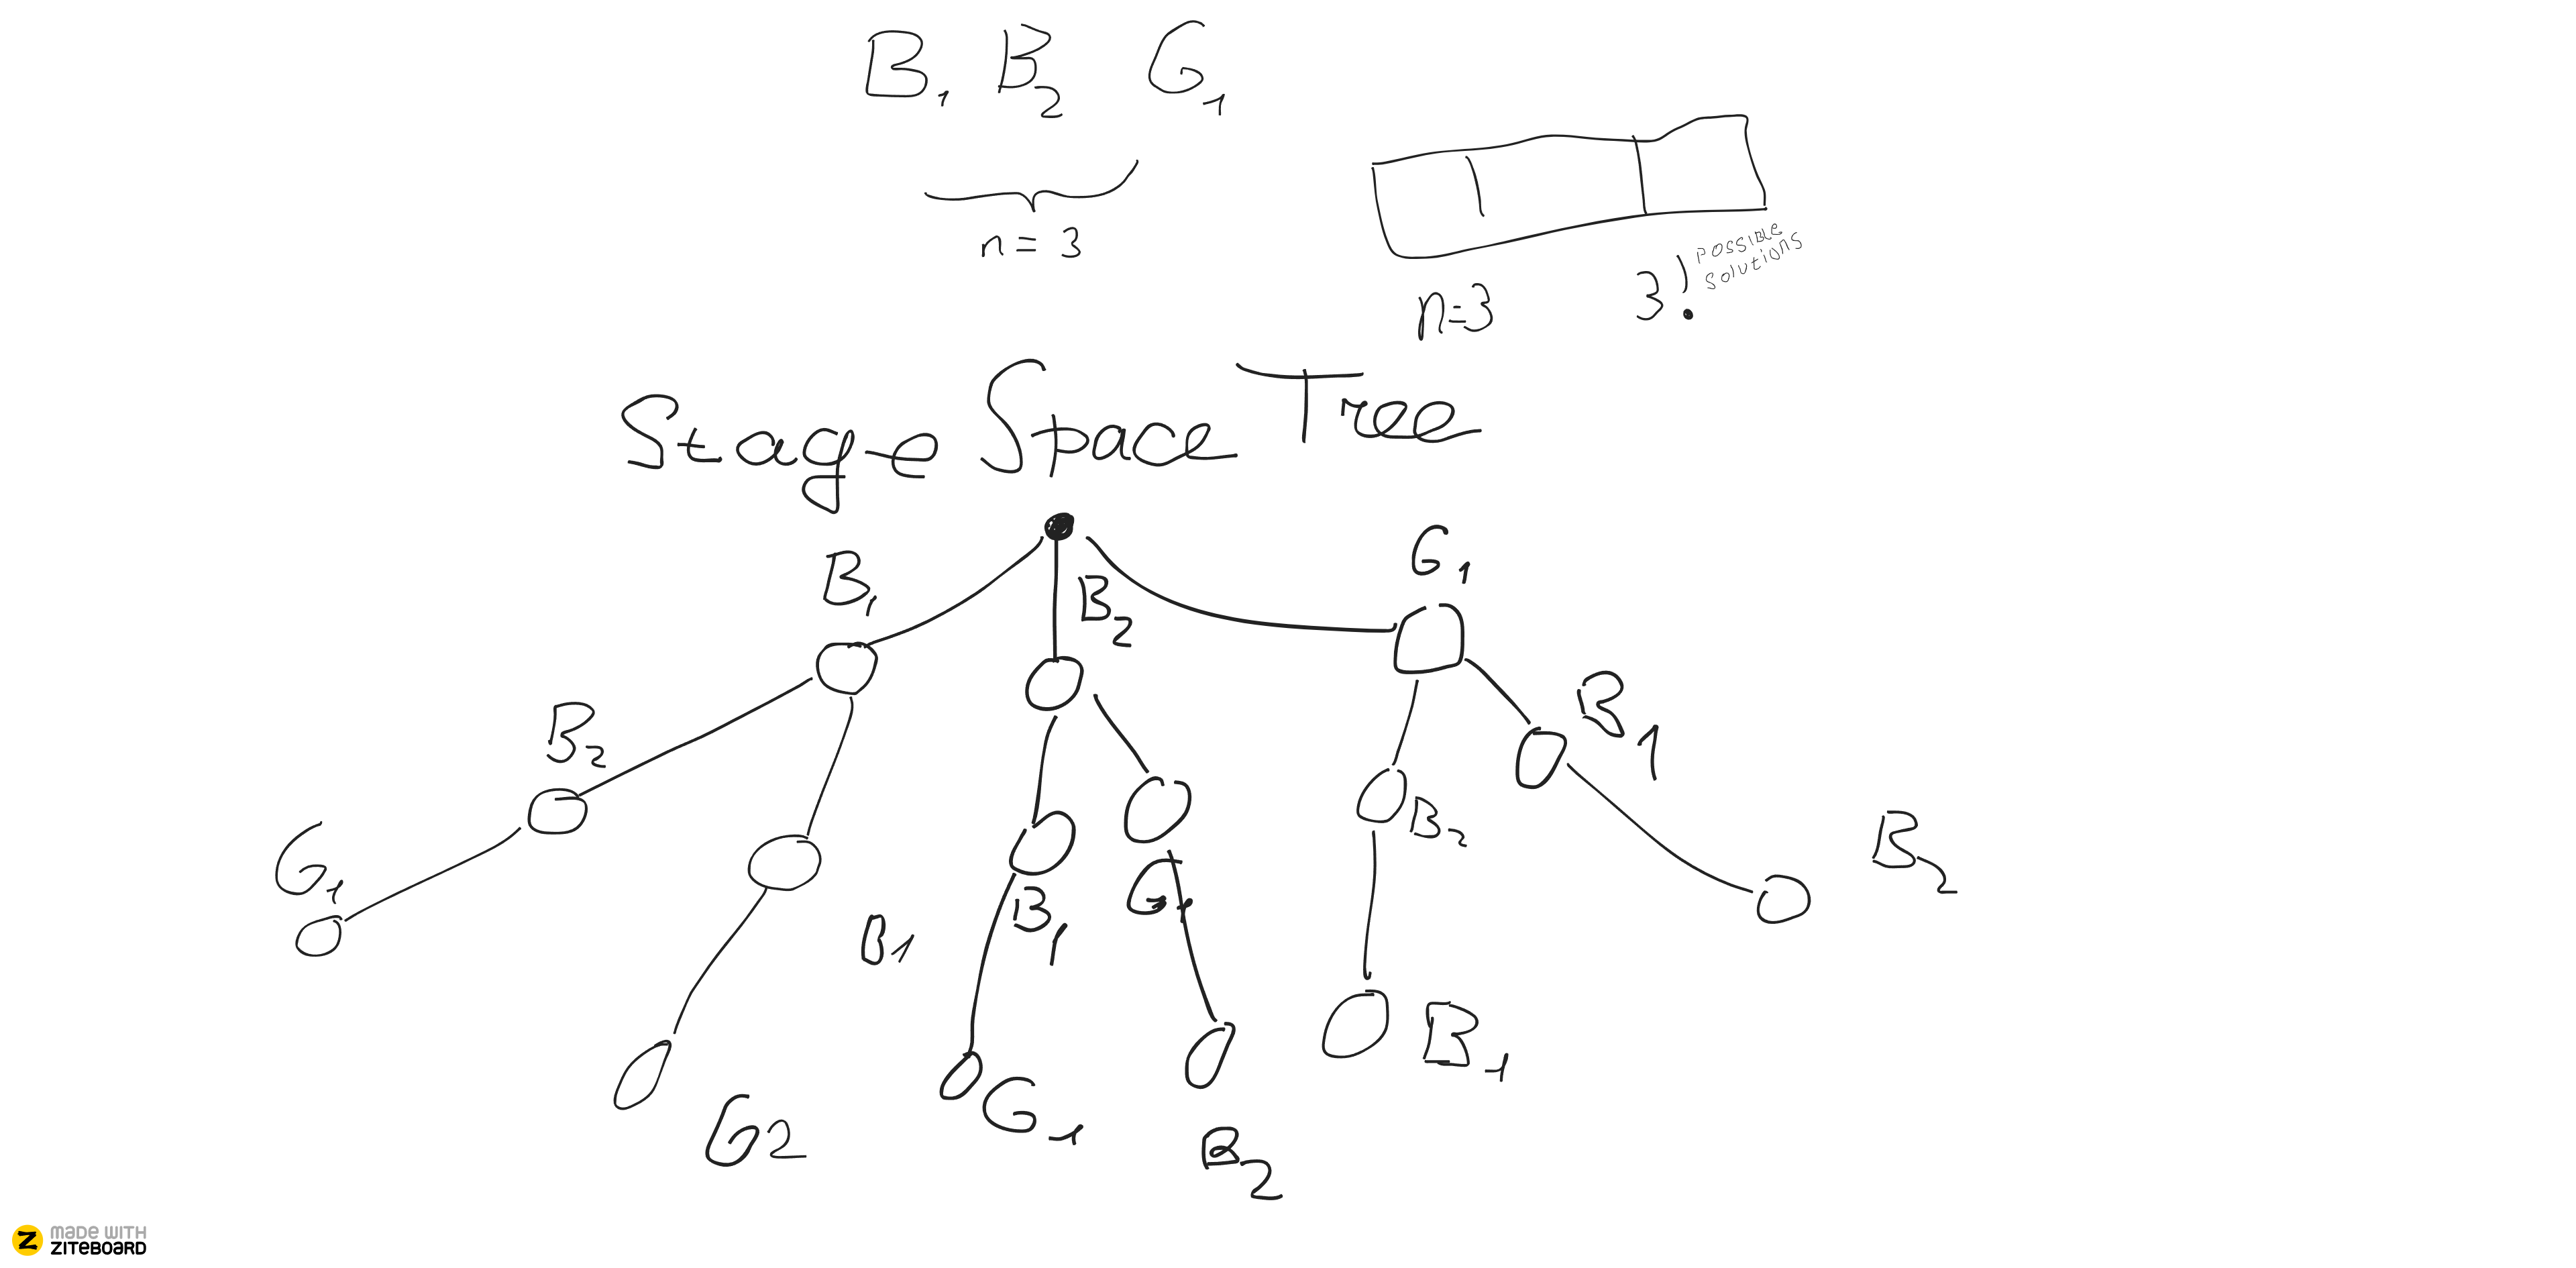 B₁ B₂ G₁
n = 3
n=3
3! possible solutions
Stage Space Tree
B₁
B₂
G₁
B₂
B₁
G₁
B₁
B₁
G₁
B₂
B₂
G2
G₁
B₂
B₁
MADE WITH
ZITEBOARD